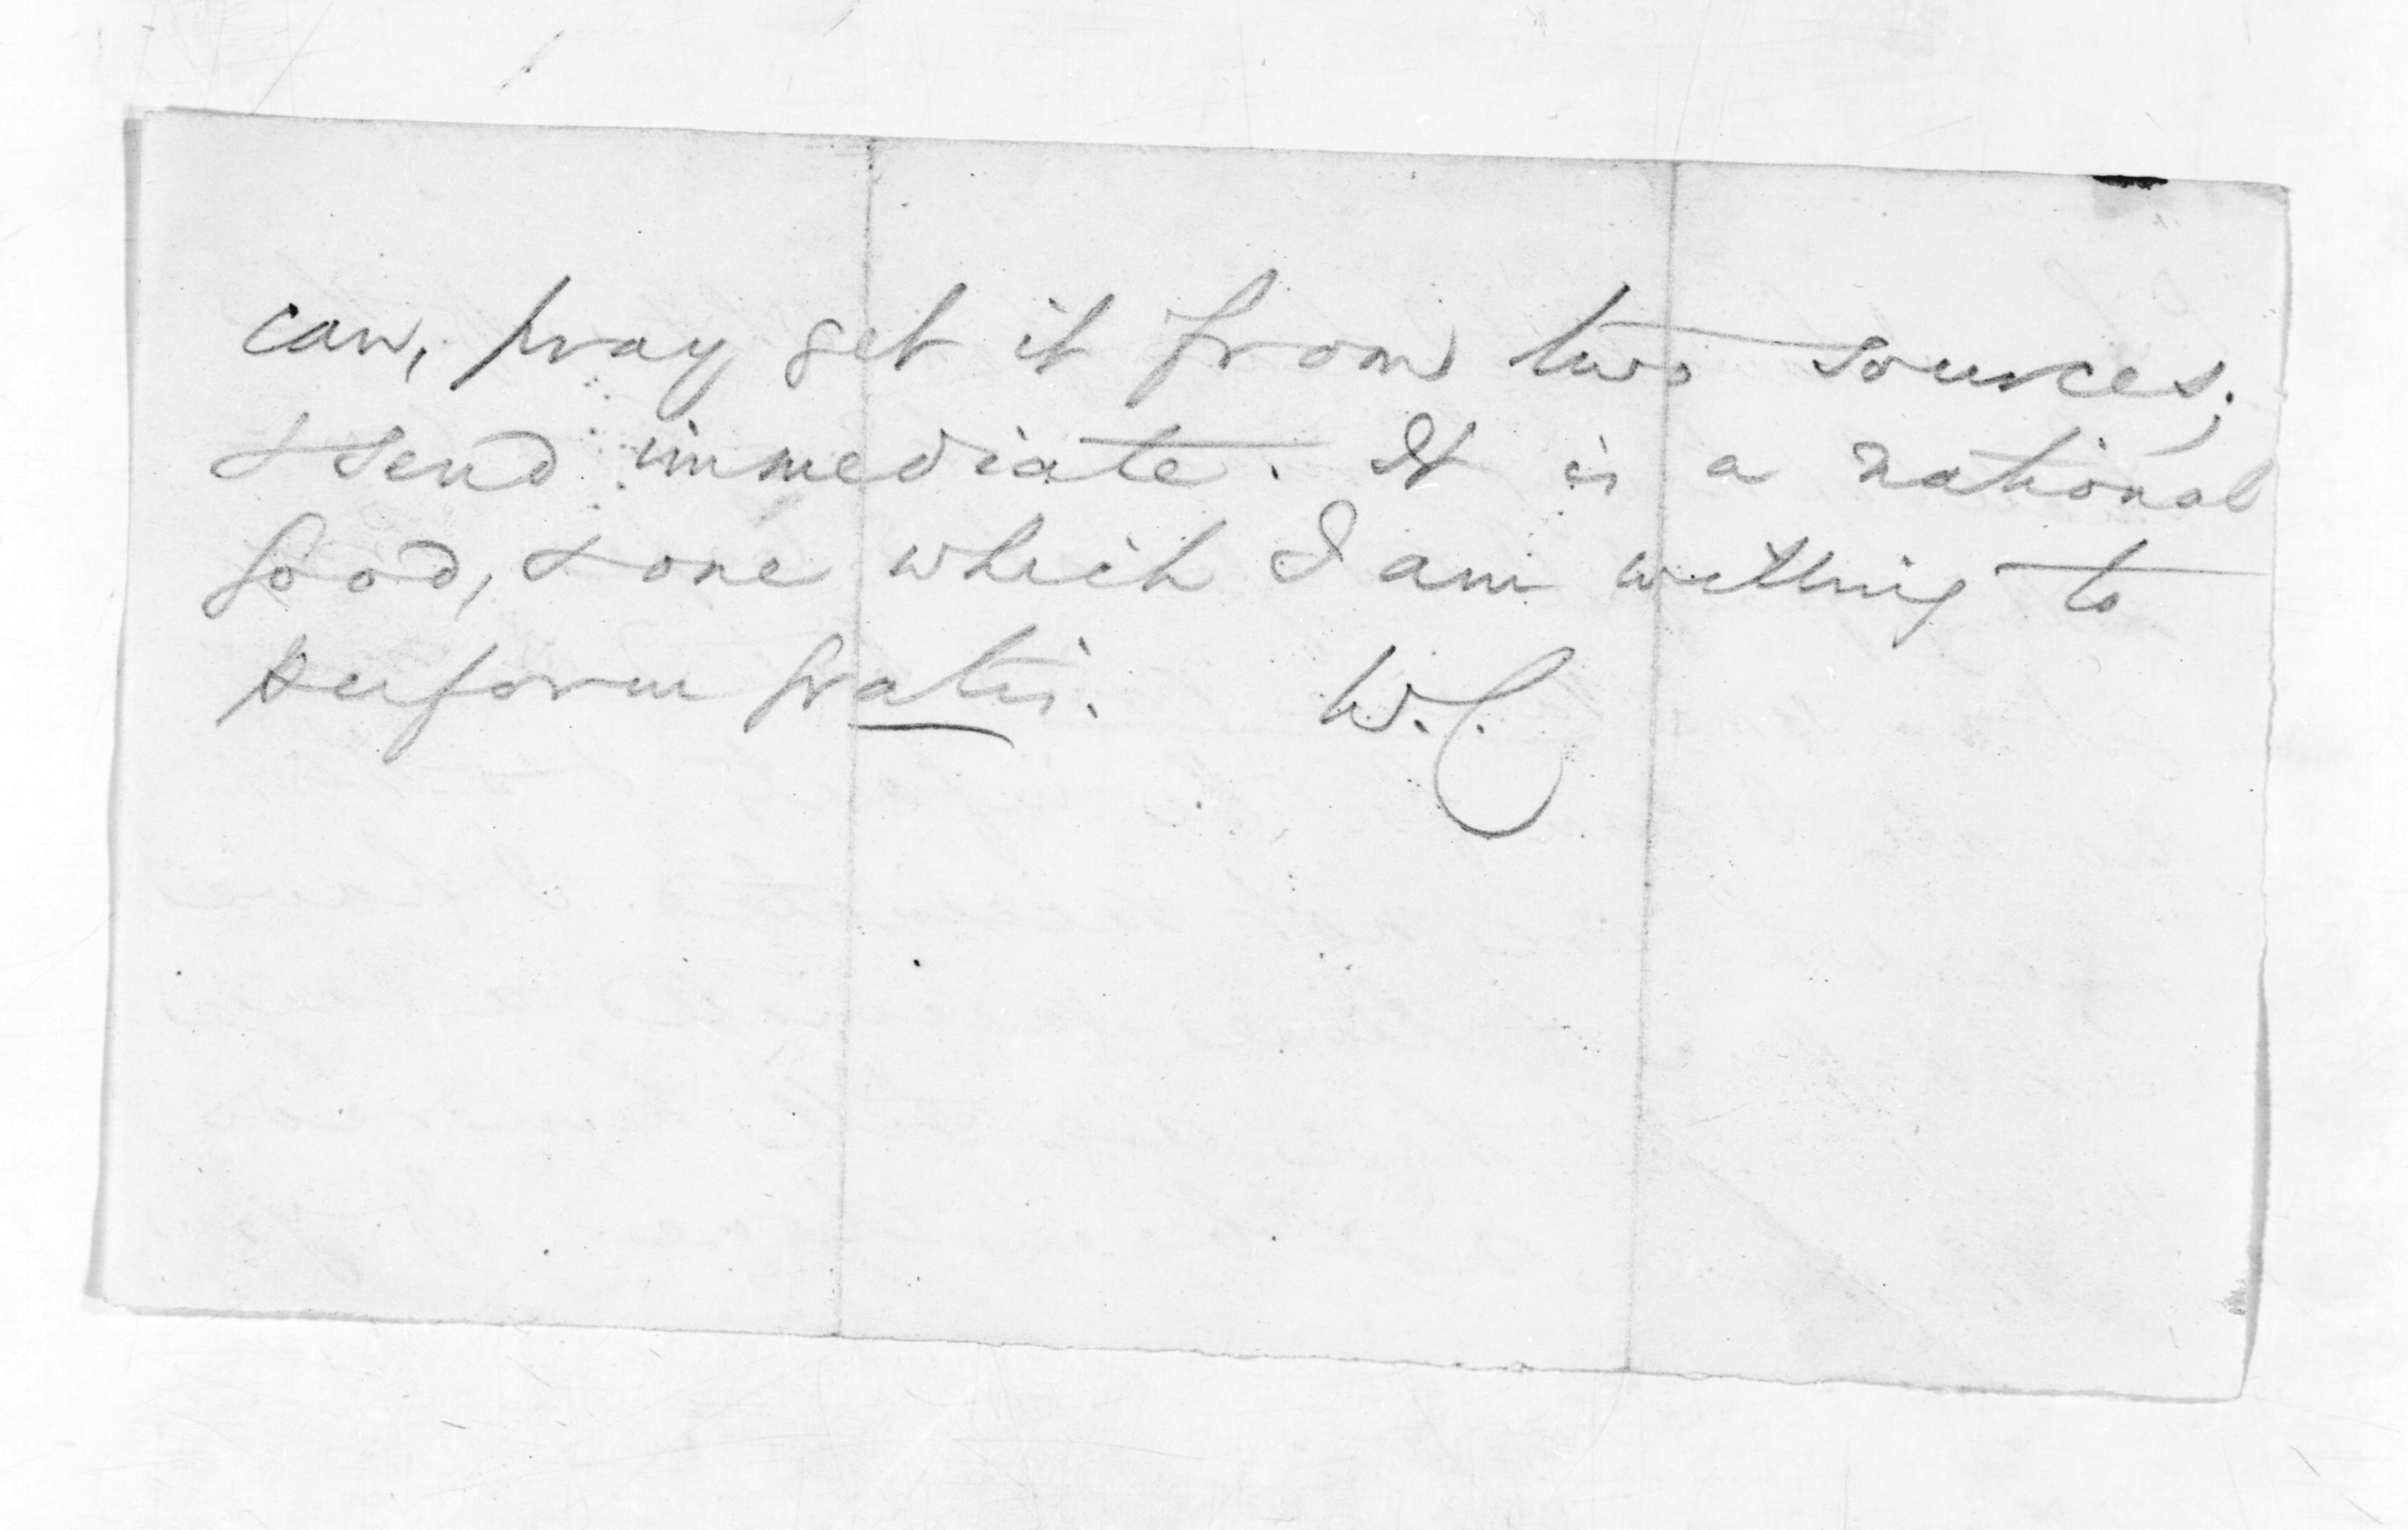 can, pray get it from two sources,
& send immediate. It is a national
good, & one which I am willing to
perform gratis. W.C.